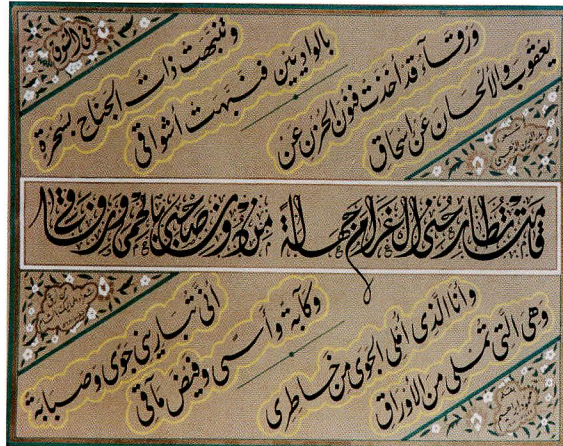 في الشوق
وتنبهت ذات الجناح بسحرة
بالواديين فنبهت أشواقي
ورقآء قد أخذت فنون الحزن عن
يعقوب والألحان عن اسحاق
قامت تطارحني الغرام جهالة من دون صحبي بالحمى ورفاقي
أنى تباريني جوى وصبابة
وكآبة وأسى وفيض مآقي
وأنا الذي أملي الجوى من خاطري
وهي التي تملي من الأوراق